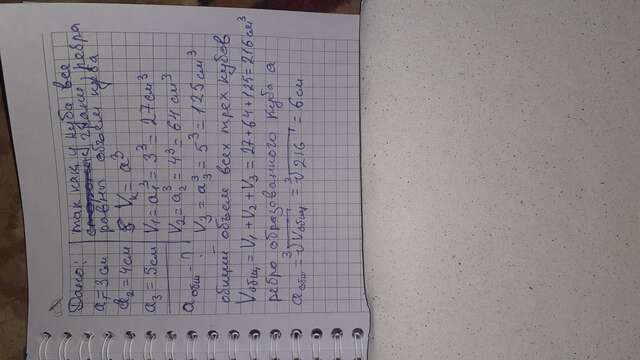 Дано:
a₁=3см
a₂=4см
a₃=5см
aобщ - ?
так как у куба все
грани, ребра
равны объем куба
Vк = a³
V₁=a₁³=3³=27см³
V₂=a₂³=4³=64см³
V₃=a³=5³=125см³
общий объем всех трех кубов
Vобщ=V₁+V₂+V₃=27+64+125=216см³
ребро образованного куба a
aобщ=³√Vобщ=³√216=6см